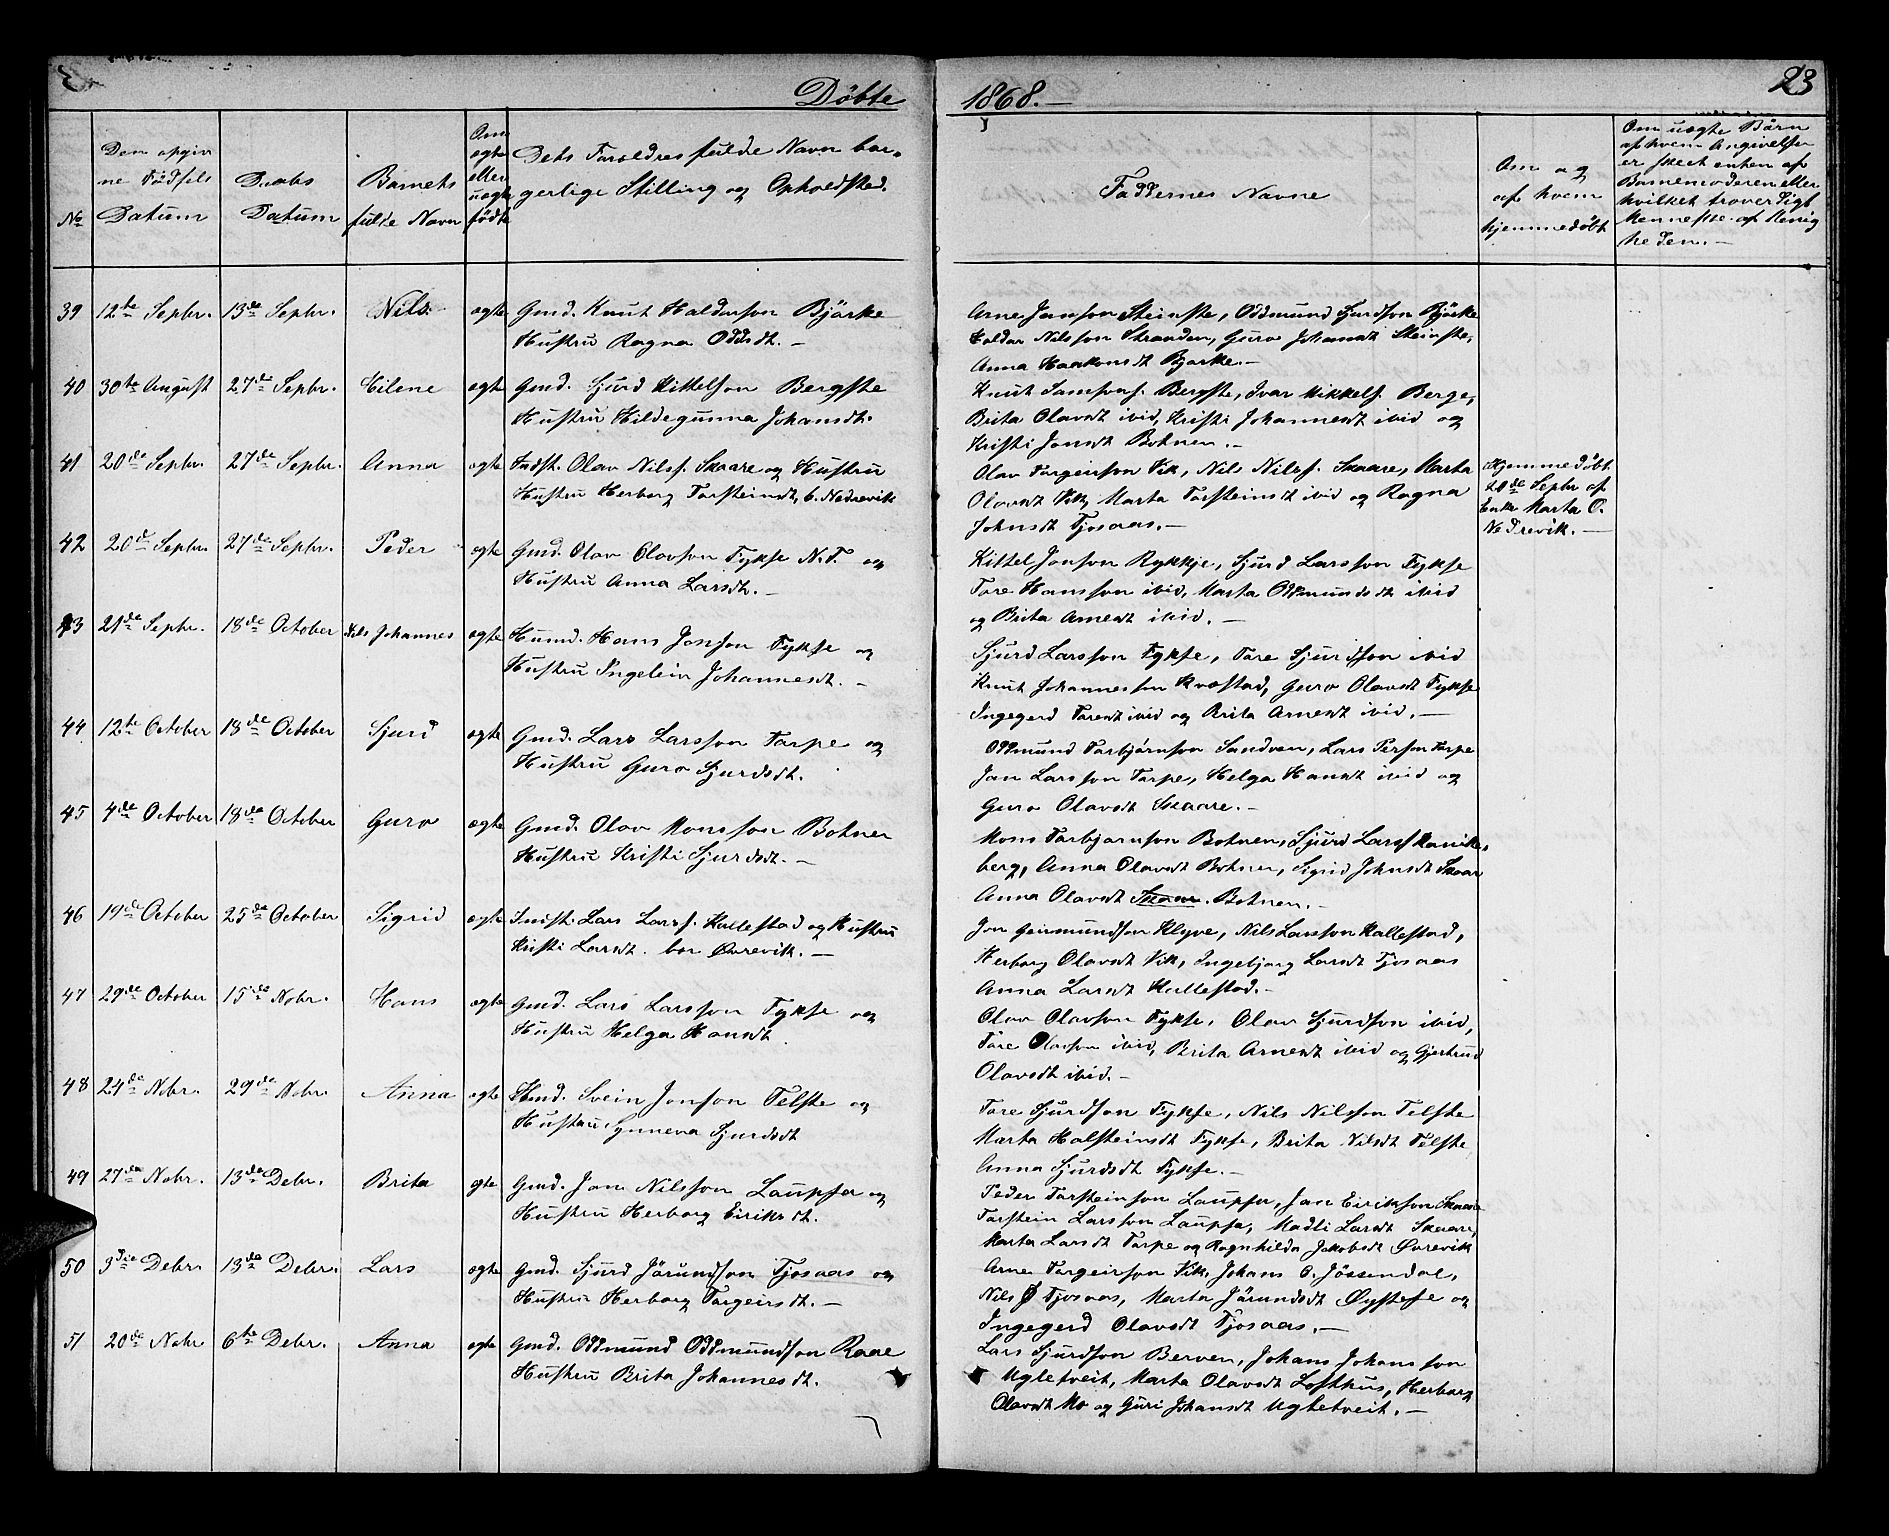 Døbte 1868.— 23
No
Den opgiv
ne Födsels
Datum
Daabs
Datum
Barnets
fulde Navn
Om
ægte
eller
uægte
födte
Dets Foreldres fulde Navn bor-
gerlige Stilling og Opholdsted.
Faddernes Navne
Om og
af hvem
hjemmedöbt
Om uægte Börn
af hvem Angivelsen
er skeet enten af
Barnemoderen eller
hvilket troverdigt
Menneske af Menig
heden.—
39 12te Septbr. 13de Septbr. Nils ægte Gmd. Knut Haldorson Björke
Hustru Ragna Oddsdt.—
Arne Janson Steinstø, Oddmund Sjurdson Björke
Haldor Nilsson Stranden, Guro Johansdt Steinstø,
Anna Haakonsdt Bjørke.—
40 30te August 27de Septbr. Eilene ægte Gmd. Sjurd Kittelson Bergstø
Hustru Hildegunna Johansdt.
Knut Samsons. Bergstø, Ivar Mikkels. Berge,
Brita Olavsdt ibid, Kristi Johannesdt ibid og
Kristi Jonsdt Botnen.—
41 20de Septbr. 27de Septbr. Anna ægte Indst. Olav Nilss. Skaare og Hustru
Hustru Herborg Torsteinsdt, b. Nedrevik
Olav Torgeirson Vik, Nils Nilss. Skaare, Marta
Olavsdt Vik, Marta Torsteinsdt ibid og Ragna
Johnsdt Tjosaas.—
Hjemmedöbt
20de Septbr af
Enke Marta O.
Nedrevik.—
42 20de Septbr. 27de Septbr. Peder ægte Gmd. Olav Olavson Fykse N.F. og
Hustru Anna Larsdt.—
Kittel Jonson Rykkje, Sjurd Larsson Fykse
Tore Hansson ibid, Marta Oddmundsdt ibid
og Brita Arnesdt ibid.—
43 21de Septbr. 18de October Nils Johannes ægte Husmd. Hans Jonson Fykse og
Hustru Ingelein Johannesdt.—
Sjurd Larsson Fykse, Tore Sjurdson ibid
Knut Johannesson Kvæstad, Guro Olavsdt Fykse
Ingegerd Toresdt ibid og Brita Arnesdt ibid.—
44 12te October 18de October Sjurd ægte Gmd. Lars Larsson Torpe og
Hustru Guro Sjurdsdt.
Oddmund Torbjørnson Sandven, Lars Person Torpe
Jon Larsson Torpe, Helga Hansdt ibid og
Guro Olavsdt Skaare.—
45 4de October 18de October Guro ægte Gmd. Olav Monsson Botnen
Hustru Kristi Sjurdsdt.—
Mons Torbjørnson Botnen, Sjurd Larss
berg, Anna Olavsdt Botnen, Sigrid Johnsdt Skaar
Anna Olavsdt Skaar. Botnen.—
46 19de October 25de October Sigrid ægte Indst. Lars Larss. Kallestad og Hustru
Kristi Larsdt. bor Øvrevik.—
Jon Geirmundson Klyve, Nils Larsson Kallestad,
Herborg Olavsdt Vik, Ingebjorg Larsdt Tjosaas
Anna Larsdt Kallestad.—
47 29de October 15de Nobr. Hans ægte Gmd. Lars Larsson Fykse og
Hustru Helga Hansdt.
Olav Olavson Fykse, Olav Sjurdson ibid,
Tore Olavson ibid, Brita Arnesdt ibid og Gjertrud
Olavsdt ibid.—
48 24de Nobr. 29de Nobr. Anna ægte Gmd. Svein Jonson Telstø og
Hustru, Synneva Sjurdsdt
Tore Sjurdson Fykse, Nils Nilsson Telstø
Marta Halsteinsdt Fykse, Brita Nilsdt Telstø
Anna Sjurdsdt Fykse.—
49 27de Nobr. 13de Debr. Brita ægte Gmd. Jon Nilsson Laupsa og
Hustru Herborg Eiriksdt.
Peder Torsteinson Laupsa, Jon Eirikson Skaare
Torstein Larsson Laupsa, Madli Larsdt Skaare,
Marta Larsdt Torpe og Ragnhilda Jakobsdt Øvrevik
50 3die Debr. 13de Debr. Lars ægte Gmd. Sjurd Jörundson Tjosaas og
Hustru Herborg Torgeirsdt.—
Arne Torgeirson Vik, Johans O. Jössendal,
Nils J Tjosaas, Marta Jörundsdt Øystese og
Ingegerd Olavsdt Tjosaas.—
51 20de Nobr 6te Debr. Anna ægte Gmd. Oddmund Oddmundson Raae
Hustru Brita Johannesdt.
Lars Sjurdson Berven, Johans Johansson
Ugletveit, Marta Olavsdt Lofthus, Herborg
Olavsdt Mo og Guri Johansdt Ugletveit.—